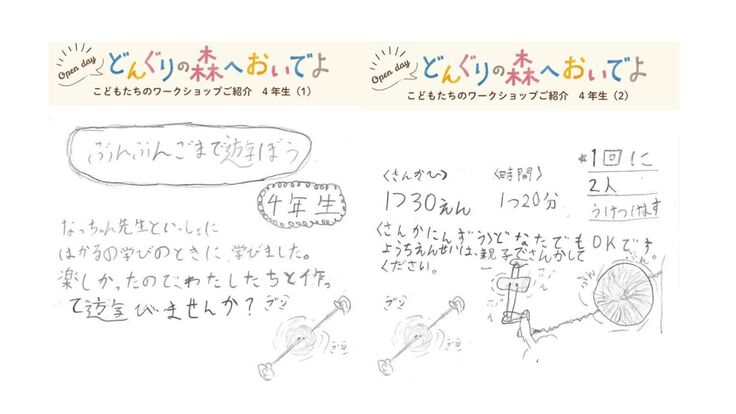 Open day
どんぐりの森へおいでよ
こどもたちのワークショップご紹介 4年生（1）
ぶんぶんごまで遊ぼう
4年生
なっちゃん先生といっしょに
はかるの学びのときに、学びました。
楽しかったので、わたしたちと作っ
て遊びませんか？
Open day
どんぐりの森へおいでよ
こどもたちのワークショップご紹介 4年生（2）
〈さんかひ〉
1つ30えん
〈時間〉
1つ20分
*1回に
2人
うけつけます
〈さんかにんずう〉どなたでもOKです。
ようちえんせいは、親子でさんかして
ください。
ぶん
ぶん